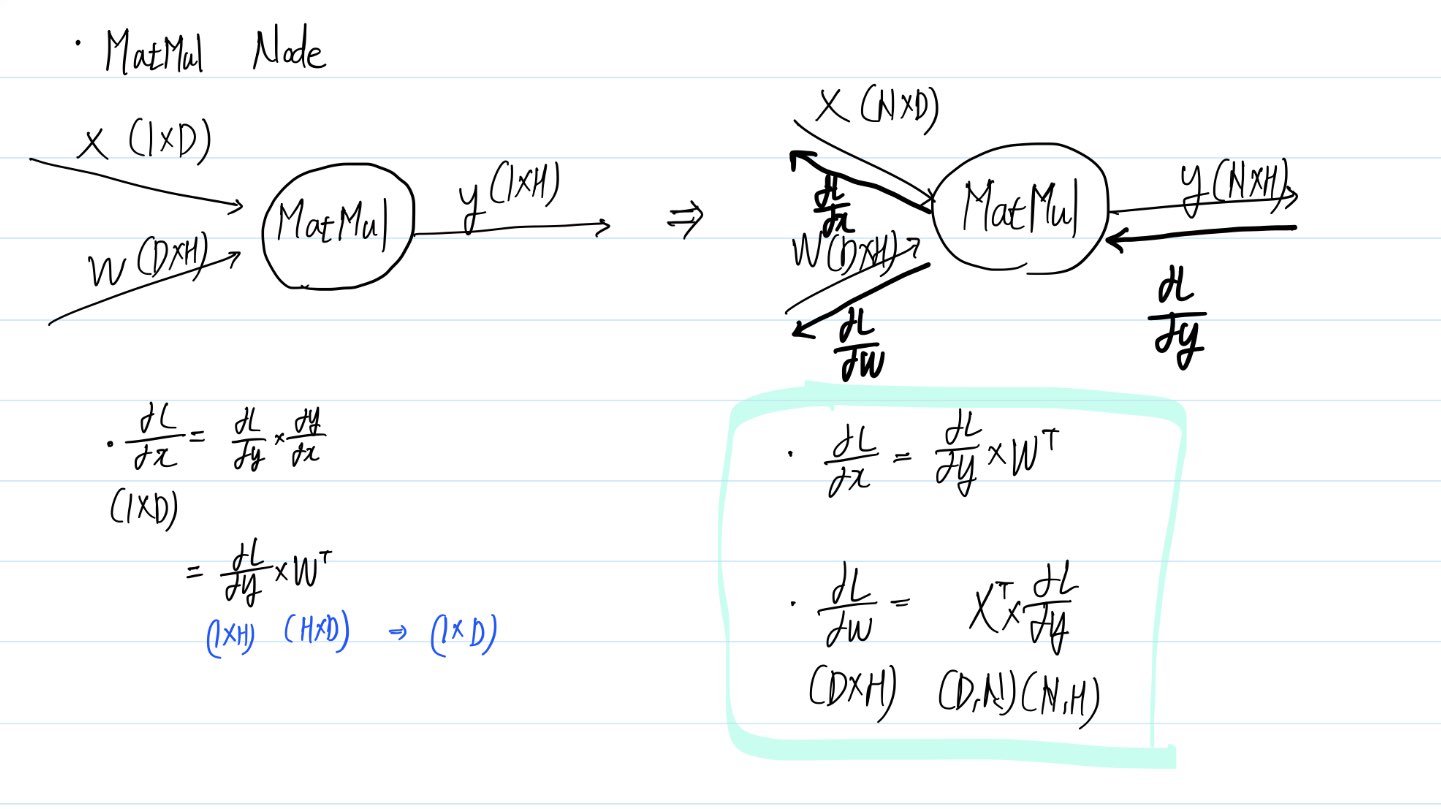 · MatMul Node
x (1×D)
W (D×H)
MatMul
y (1×H)
⇒
X (N×D)
∂L/∂x
W (D×H)
∂L/∂W
MatMul
y (N×H)
∂L/∂y
· ∂L/∂x = ∂L/∂y × ∂y/∂x
(1×D)
= ∂L/∂y × W^T
(1×H) (H×D) ⇒ (1×D)
· ∂L/∂x = ∂L/∂y × W^T
· ∂L/∂W = X^T × ∂L/∂y
(D×H) (D,N) (N,H)